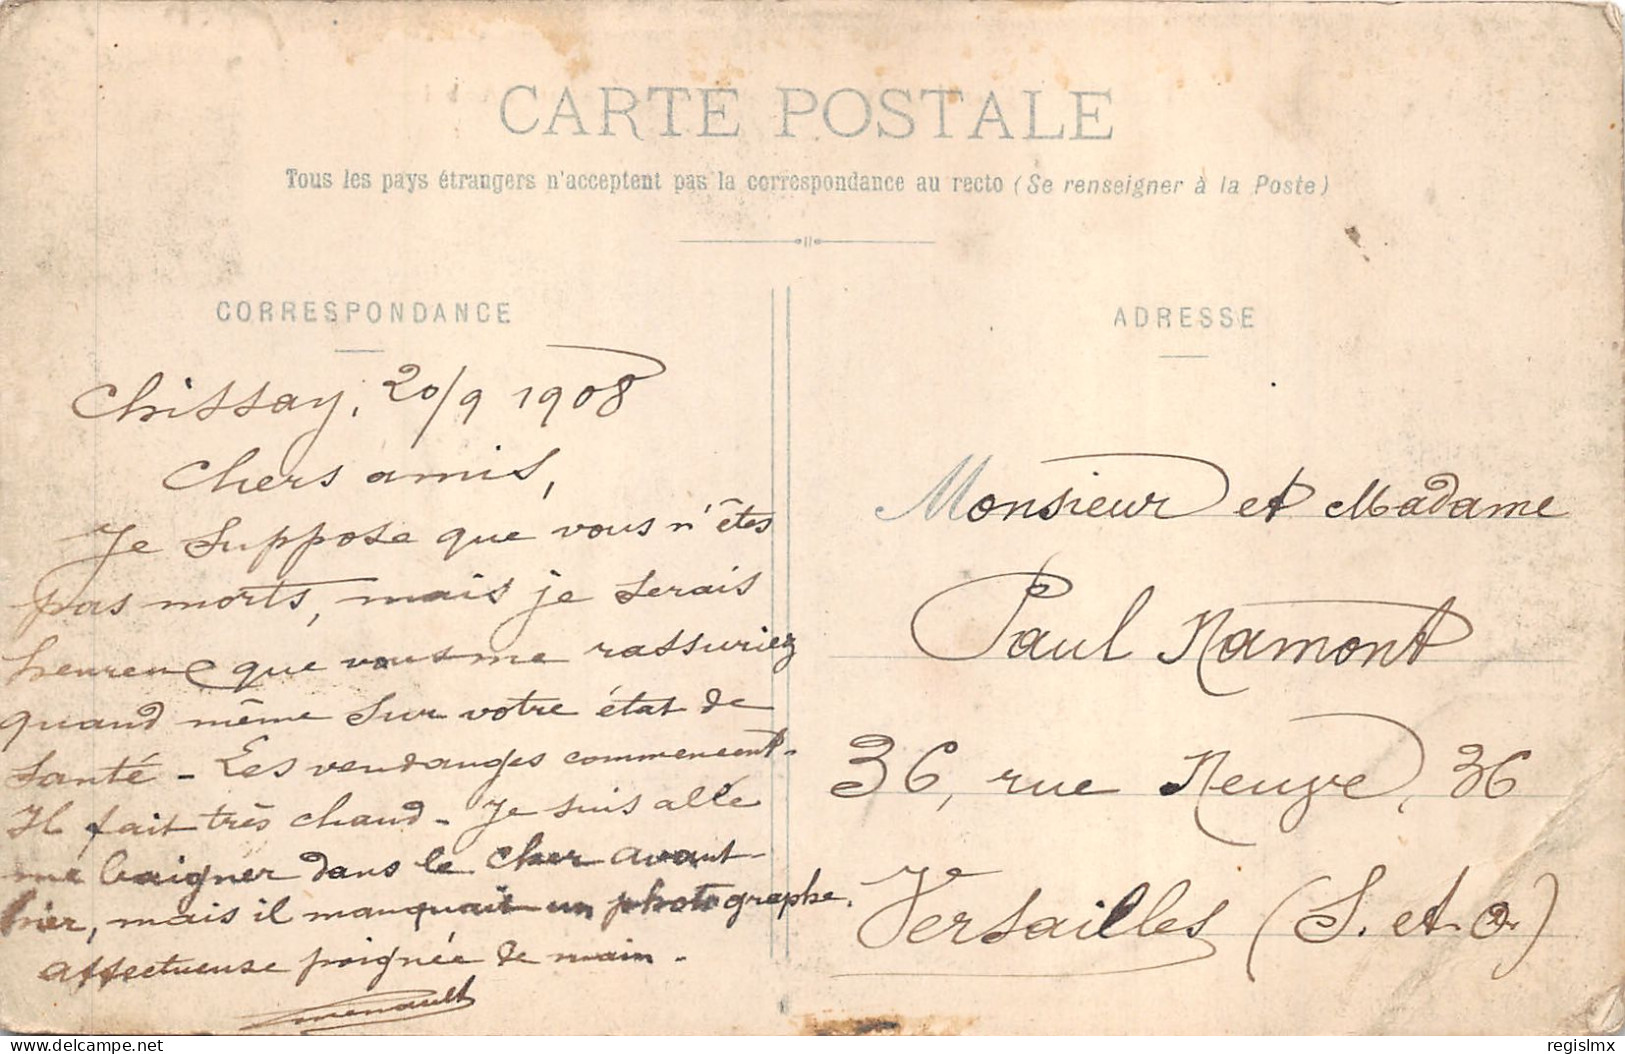 CARTE POSTALE
Tous les pays étrangers n'acceptent pas la correspondance au recto (Se renseigner à la Poste)
CORRESPONDANCE
Chissay, 20/9 1908
Chers amis,
Je suppose que vous n'êtes
pas morts, mais je serais
heureux que vous me rassuriez
quand même sur votre état de
santé - Les vendanges commencent -
Il fait très chaud - Je suis allé
me baigner dans le Cher avant
hier, mais il manquait un photographe.
affectueuse poignée de main -
Menault
ADRESSE
Monsieur et Madame
Paul Namont
36, rue Neuve, 36
Versailles (S. et O.)
www.delcampe.net
regislmx